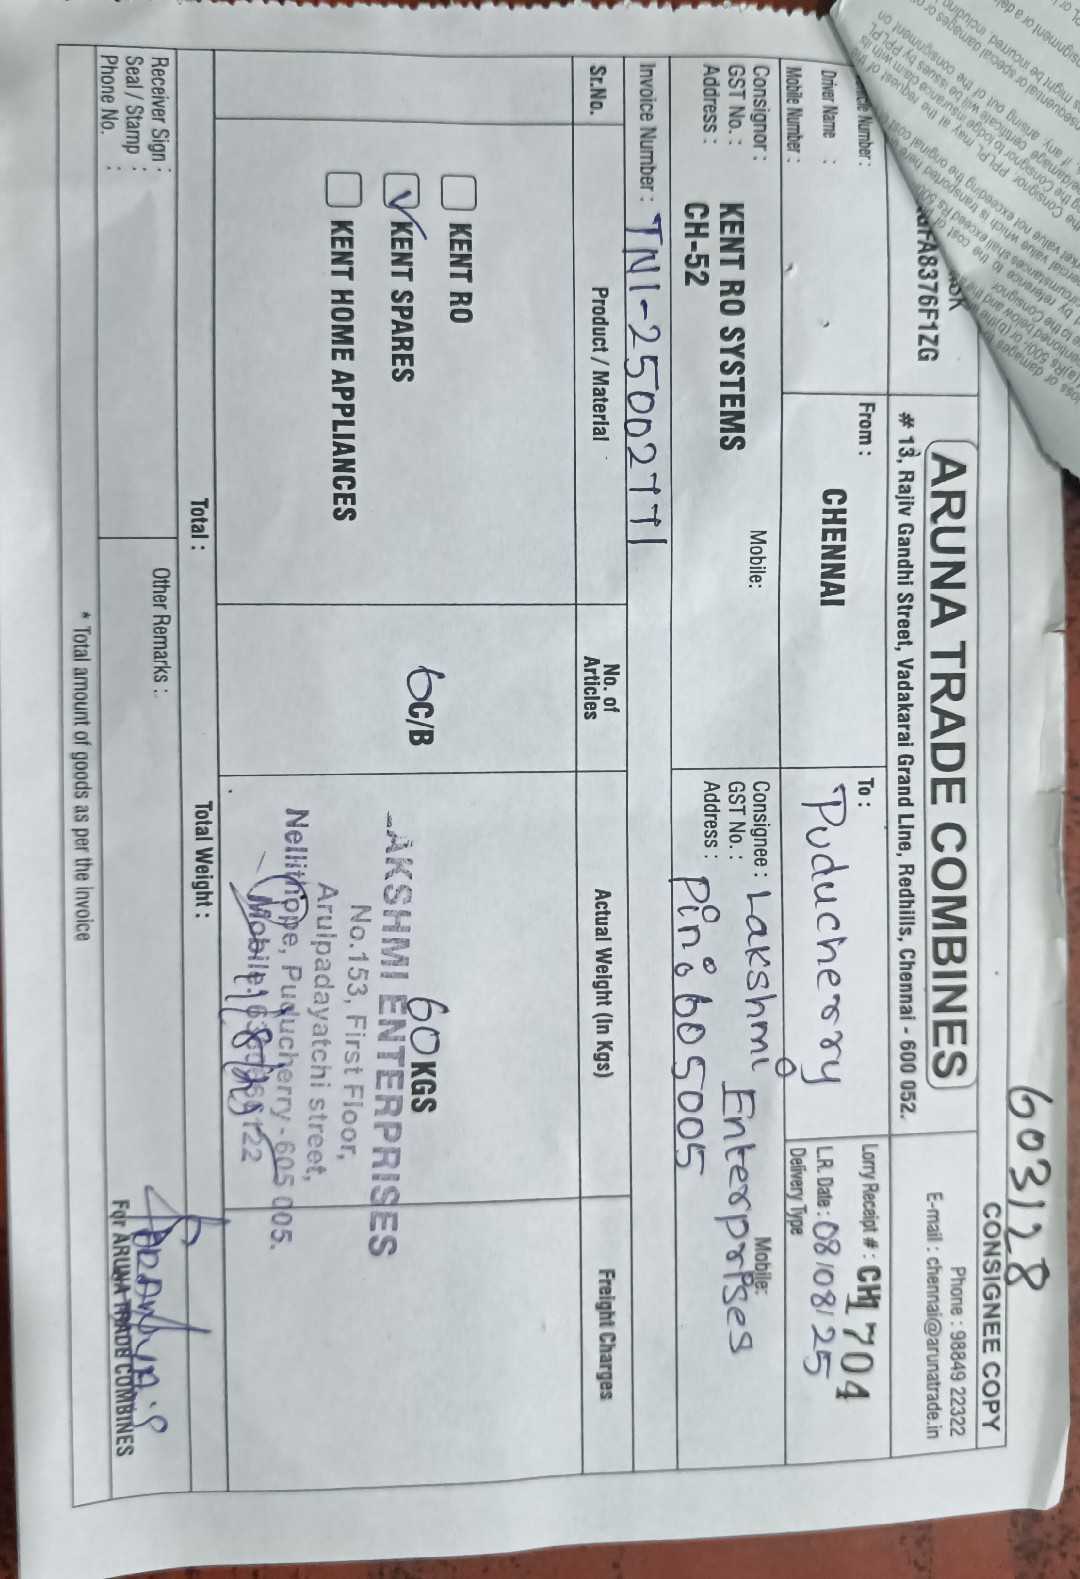 603128
CONSIGNEE COPY
ARUNA TRADE COMBINES
Phone : 98849 22322
# 13, Rajiv Gandhi Street, Vadakarai Grand Line, Redhills, Chennai - 600 052.
E-mail : chennai@arunatrade.in
FA8376F1ZG
Number :
Driver Name :
Mobile Number :
From :
CHENNAI
To :
Puducherry
Lorry Receipt # : CH1 704
L.R. Date : 08/08/25
Delivery Type
Consignor : KENT RO SYSTEMS
Mobile:
GST No. :
Address : CH-52
Consignee : Lakshmi Enterprises
Mobile:
GST No. :
Address : Pin: 605005
Invoice Number : TN1-25002771
Sr.No.
Product / Material
No. of Articles
Actual Weight (In Kgs)
Freight Charges
KENT RO
KENT SPARES
KENT HOME APPLIANCES
6 C/B
60 KGS
LAKSHMI ENTERPRISES
No.153, First Floor,
Arulpadayatchi street,
Nellithope, Puducherry - 605 005.
Mobile:
Total :
Total Weight :
Receiver Sign :
Seal / Stamp :
Phone No. :
Other Remarks :
For ARUNA TRADE COMBINES
* Total amount of goods as per the invoice